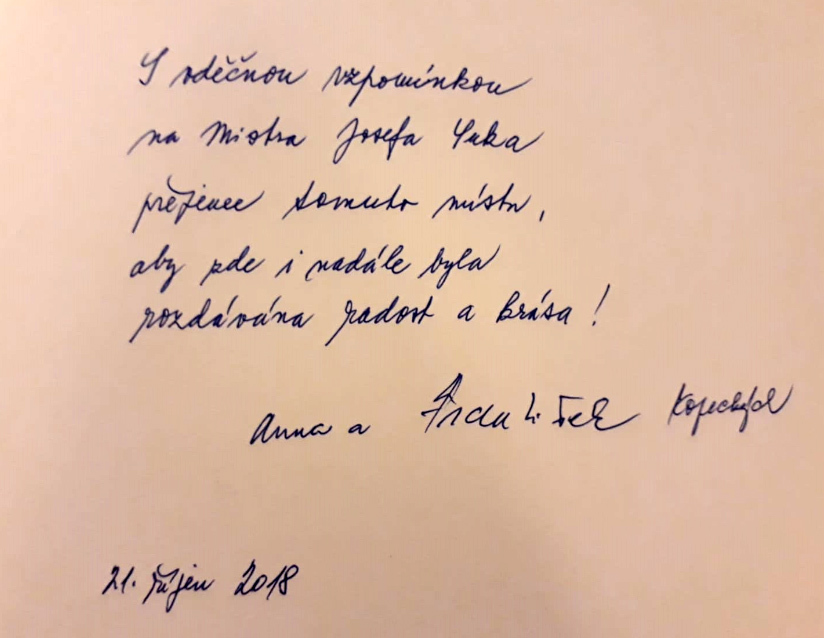 S vděčnou vzpomínkou
na Mistra Josefa Suka
přejeme tomuto místu,
aby zde i nadále byla
rozdávána radost a krása!
Anna a František Kopeckých
21. říjen 2018